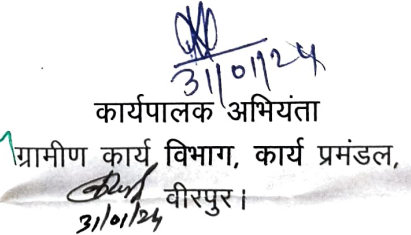 31/01/24
कार्यपालक अभियंता
ग्रामीण कार्य विभाग, कार्य प्रमंडल,
वीरपुर।
31/01/24